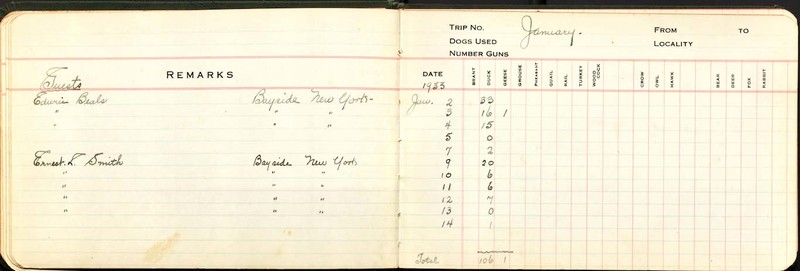 REMARKS
Guests
Edwin Beals Bayside New York
" " "
" " "
Ernest. L. Smith Bayside New York
" " "
" " "
" " "
" " "
TRIP NO. January. FROM TO
DOGS USED LOCALITY
NUMBER GUNS
DATE BRANT DUCK GEESE GROUSE PHEASANT QUAIL RAIL TURKEY WOOD COCK CROW OWL HAWK BEAR DEER FOX RABBIT
1933
Jan. 2 33
3 16 1
4 15
5 0
7 2
9 20
10 6
11 6
12 7
13 0
14 1
Total 106 1